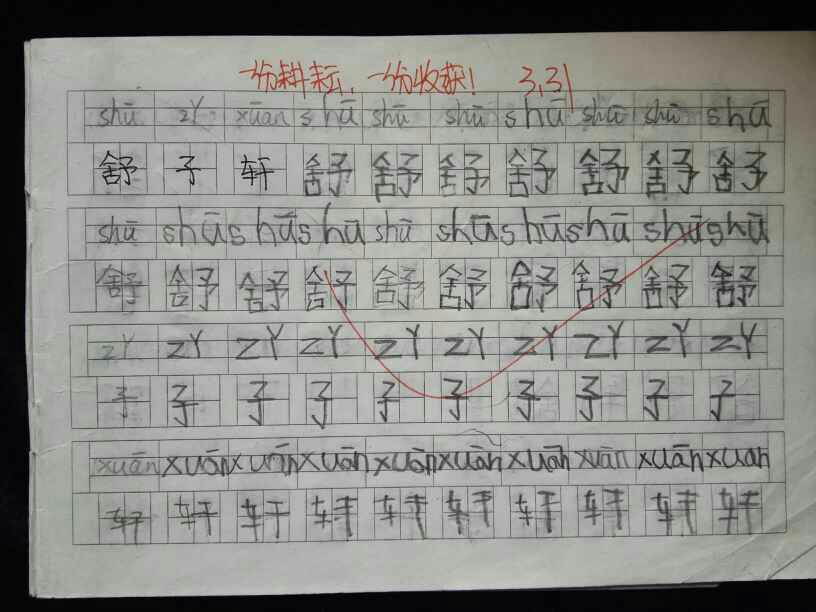 一份耕耘，一份收获！ 3.31
shū zǐ xuān shū shū shū shū shū shū shū
舒 子 轩 舒 舒 舒 舒 舒 舒 舒
shū shū shū shū shū shū shū shū shū shū
舒 舒 舒 舒 舒 舒 舒 舒 舒 舒
zǐ zǐ zǐ zǐ zǐ zǐ zǐ zǐ zǐ zǐ
子 子 子 子 子 子 子 子 子 子
xuān xuān xuān xuān xuān xuān xuān xuān xuān xuan
轩 轩 轩 轩 轩 轩 轩 轩 轩 轩